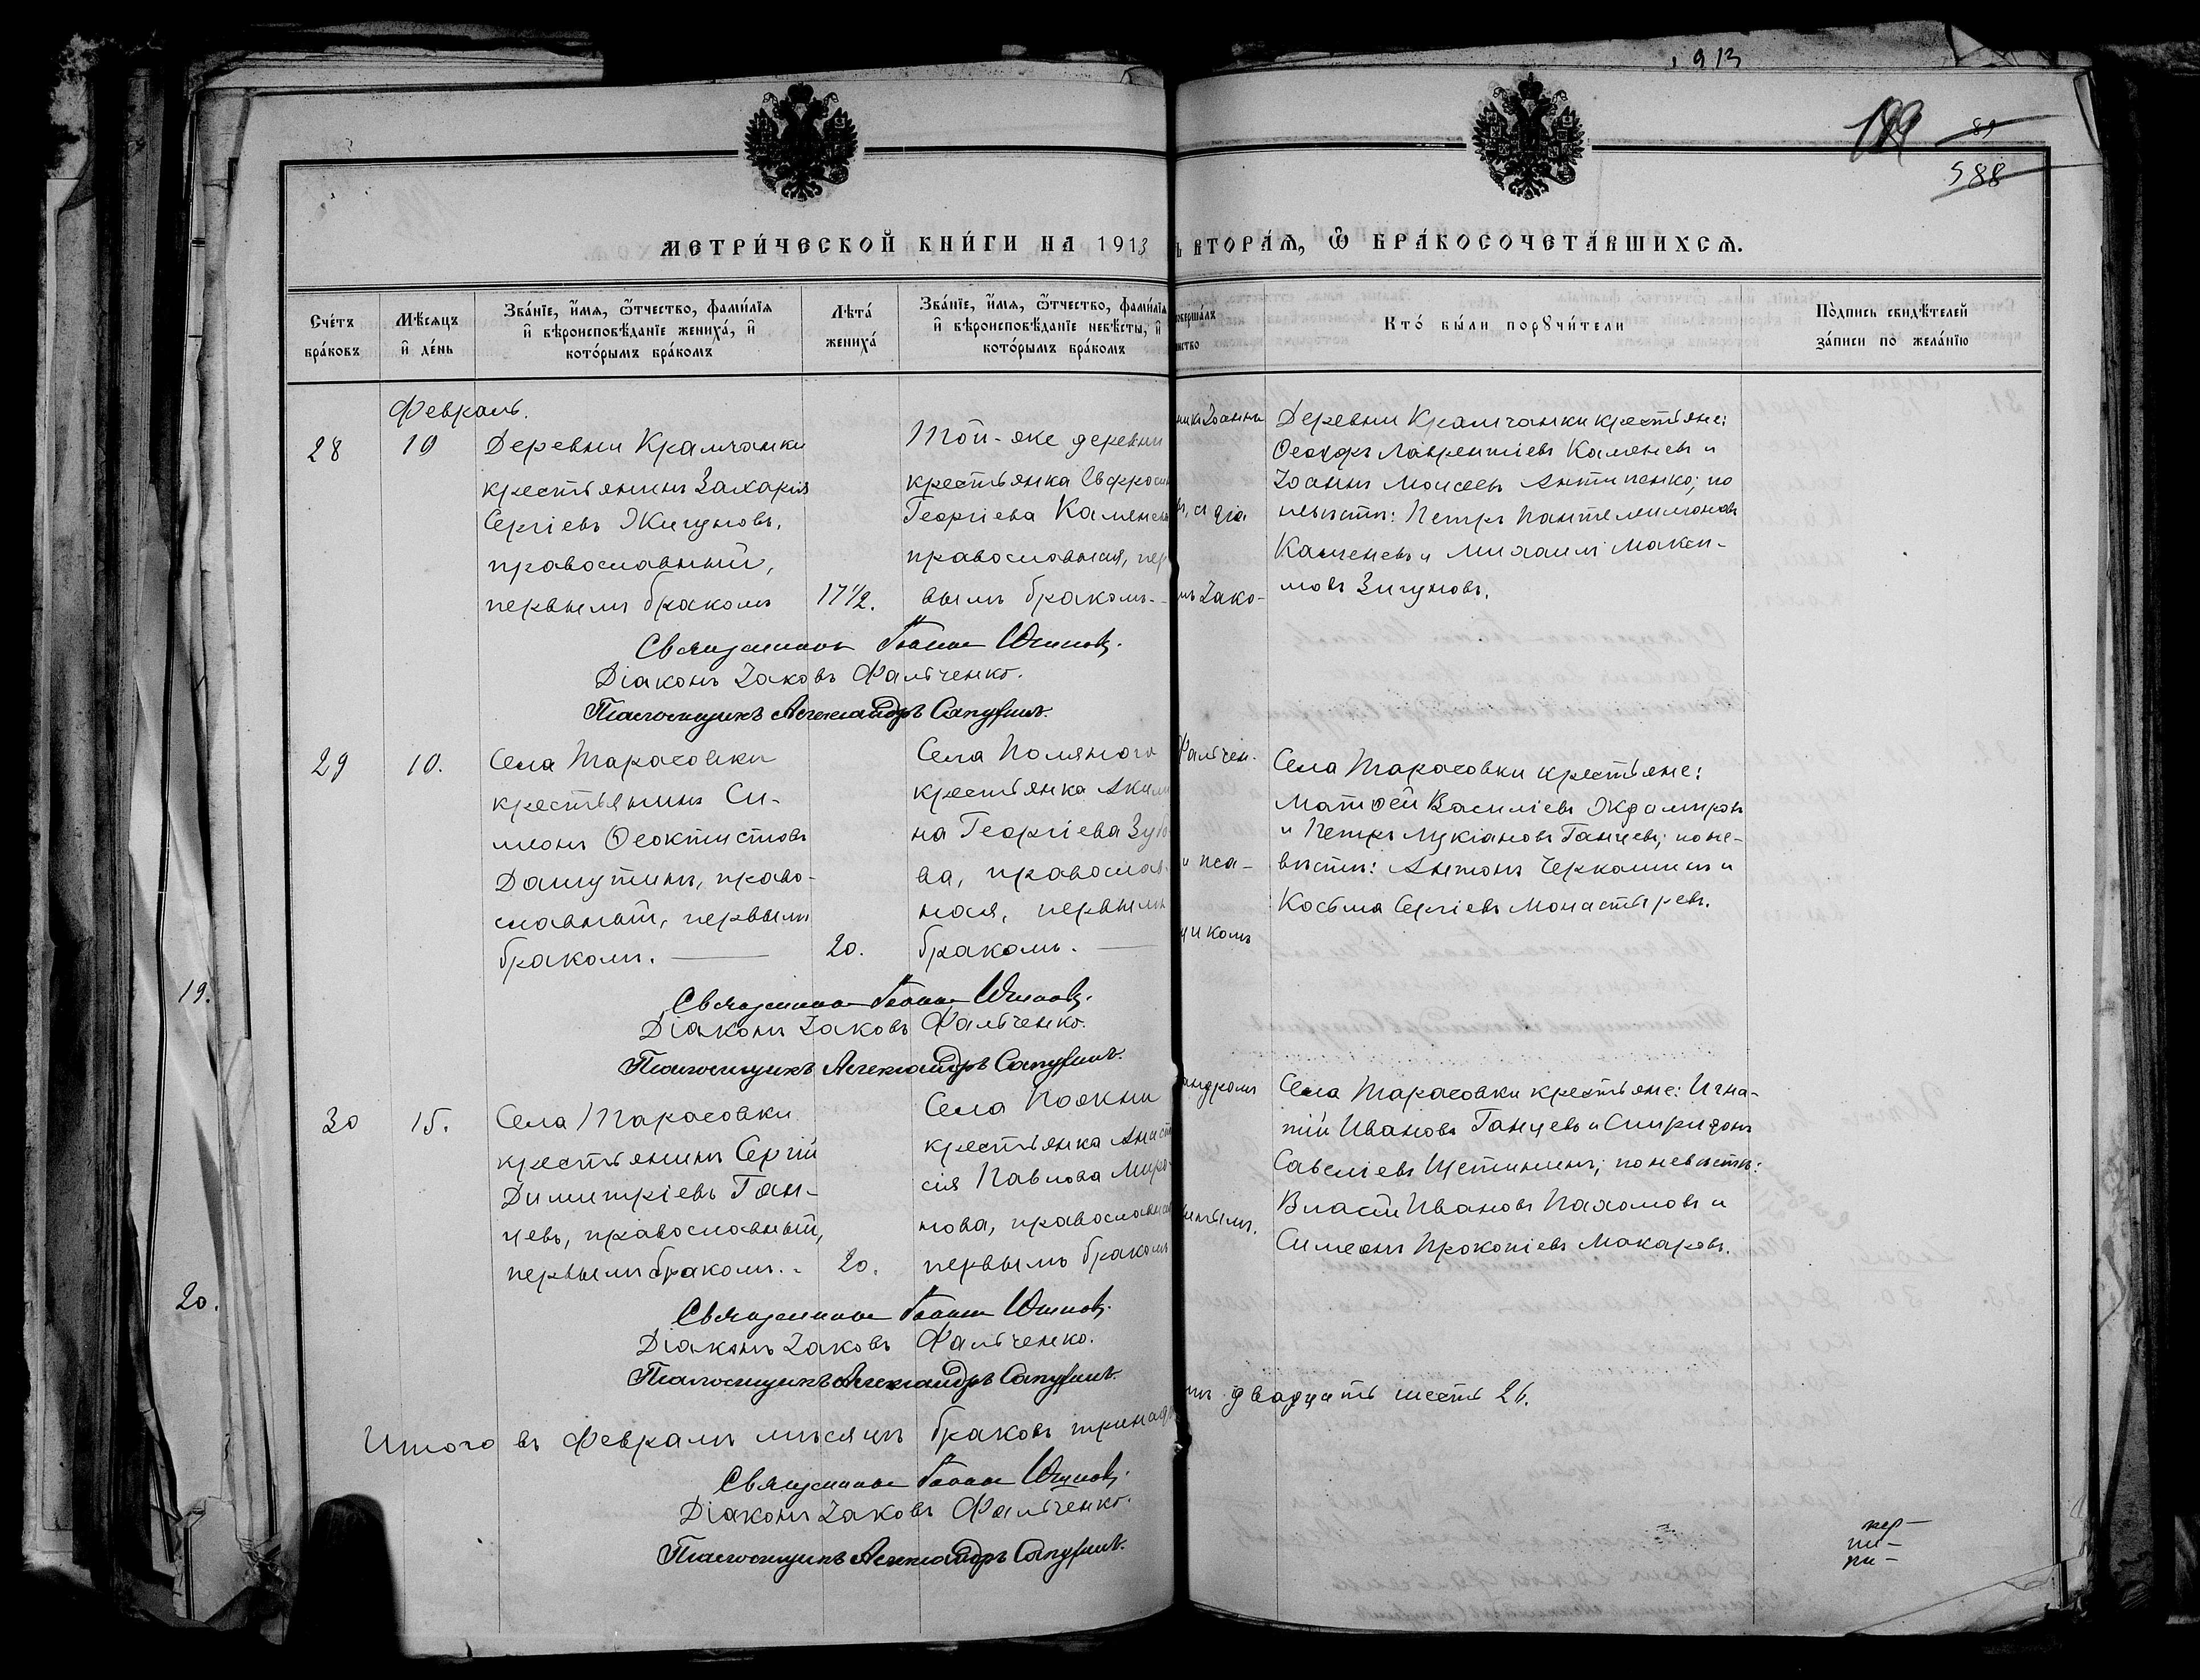 1913
89
588
МЕТРИ́ЧЕСКОЙ КНИ́ГИ НА 1913
Ь ВТОРА́Ѧ, Ѽ БРА́КОСОЧЕТА́ВШИХСѦ.
Сче́тъ бра́ковъ
Мѣ́сяцъ и҆ де́нь
Зва́нїе, и҆́мѧ, ѻ҆́тчество, фами́лїѧ и҆ вѣроисповѣ́данїе жениха́, и҆ кото́рымъ бра́комъ
Лѣта́ жениха́
Зва́нїе, и҆́мѧ, ѻ҆́тчество, фами́лїѧ и҆ вѣроисповѣ́данїе невѣ́сты, и҆ кото́рымъ бра́комъ
совершалъ
нство
Кто́ бы́ли порꙋчи́тели
По́дпись свидѣ́телей за́писи по жела́нїю
Февраль.
28
10
Деревни Крамчанки
крестьянинъ Захарія
Сергіевъ Жигуновъ,
православный,
первымъ бракомъ
17½.
Той-же деревни
крестьянка Евфроси
Георгіева Каменев
православная, пер
вымъ бракомъ.
ники Іоаннъ
въ, и діа
мъ Іако-
Деревни Крамчанки крестьяне:
Ѳеодоръ Лаврентіевъ Каменевъ и
Іоаннъ Моисеевъ Антипенко; по
невѣстѣ: Петръ Пантелимоновъ
Каменевъ и Михаилъ Макси-
мовъ Зигуновъ.
Священникъ Іоаннъ
Діаконъ Іаковъ Фальченко.
Псаломщикъ Александръ
29
10.
Села Тарасовки
крестьянинъ Си-
меонъ Ѳеоктистовъ
Дашутинъ, право-
славный, первымъ
бракомъ.
20.
Села Поляного
крестьянка Акили
на Георгіева Зубо
ва, православ
ная, первымъ
бракомъ.
Фальчен-
и пса-
щикомъ
Села Тарасовки крестьяне:
Матѳей Василіевъ Ждамировъ
и Петръ Лукіановъ Ганцевъ; по не-
вѣстѣ: Антонъ Черкашинъ и
Косьма Сергіевъ Монастыревъ.
Священникъ Іоаннъ
Діаконъ Іаковъ Фальченко.
Псаломщикъ Александръ
30
15.
Села Тарасовки
крестьянинъ Сергій
Димитріевъ Ган-
цевъ, православный,
первымъ бракомъ.
20.
Села Пояни
крестьянка Анаста
сія Павлова Миро
нова, православная
первымъ бракомъ
андромъ
Села Тарасовки крестьяне: Игна-
тій Ивановъ Ганцевъ и Спиридонъ
Савеліевъ Щетининъ; по невѣстѣ:
Власій Ивановъ Пахомовъ и
Симеонъ Прокопіевъ Макаровъ.
Священникъ Іоаннъ
Діаконъ Іаковъ Фальченко.
Псаломщикъ Александръ
Итого въ Февралѣ мѣсяцѣ браковъ тринадц
двадцать шесть 26.
Священникъ Іоаннъ
Діаконъ Іаковъ Фальченко.
Псаломщикъ Александръ
19.
20.